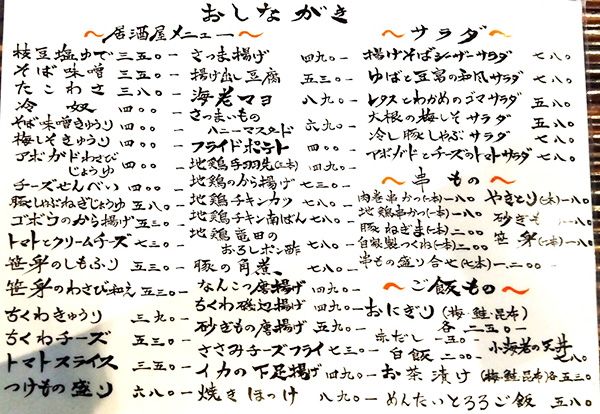 おしながき
～居酒屋メニュー～
枝豆塩ゆで 三五〇-
そば味噌 三五〇-
たこわさ 三八〇-
冷奴 四〇〇-
そば味噌きゅうり 四〇〇-
梅しそきゅうり 四〇〇-
アボガドわさびじょうゆ 四〇〇-
チーズせんべい 四〇〇-
豚しぶねぎじょうゆ 五八〇-
ゴボウのから揚げ 五三〇-
トマトとクリームチーズ 七三〇-
笹身のしもふり 五三〇-
笹身のわさび和え 五三〇-
ちくわきゅうり 三九〇-
ちくわチーズ 五三〇-
トマトスライス 三五〇-
つけもの盛り 六八〇-
さつま揚げ 四九〇-
揚げ出し豆腐 五三〇-
海老マヨ 八九〇-
さつまいもの
ハニーマスタード 六九〇-
フライドポテト 四〇〇-
地鶏手羽先(二本) 四九〇-
地鶏のから揚げ 七三〇-
地鶏チキンカツ 七八〇-
地鶏チキン南ばん 七八〇-
地鶏竜田の
おろしポン酢 七八〇-
豚の角煮 七八〇-
なんこつ唐揚げ 四九〇-
ちくわ磯辺揚げ 四九〇-
砂ぎもの唐揚 五九〇-
ささみチーズフライ 七三〇-
イカの下足揚げ 四九〇-
焼きほっけ 八九〇-
～サラダ～
揚げそばシーザーサラダ 七八〇-
ゆばと豆富の和風サラダ 七八〇-
レタスとわかめのゴマサラダ 五八〇-
大根の梅しそサラダ 五八〇-
冷し豚しゃぶサラダ 七八〇-
アボガドとチーズのトマトサラダ 七八〇-
～串もの～
肉巻串かつ(一本) 一八〇-
地鶏串かつ(一本) 一八〇-
豚ねぎま(二本) 二〇〇-
自家製つくね(二本) 三〇〇-
串もの盛り合せ(七本) 一、二〇〇-
やきとり(一本) 一八〇-
砂ぎも(一本) 一八〇-
笹身(一本) 一八〇-
～ご飯もの～
おにぎり(梅・鮭・昆布)
各二五〇-
赤だし 一五〇-
白飯 二〇〇-
小海老の天丼
七八〇-
お茶漬け(梅・鮭・昆布)各五三〇
めんたいとろろご飯 五八〇-